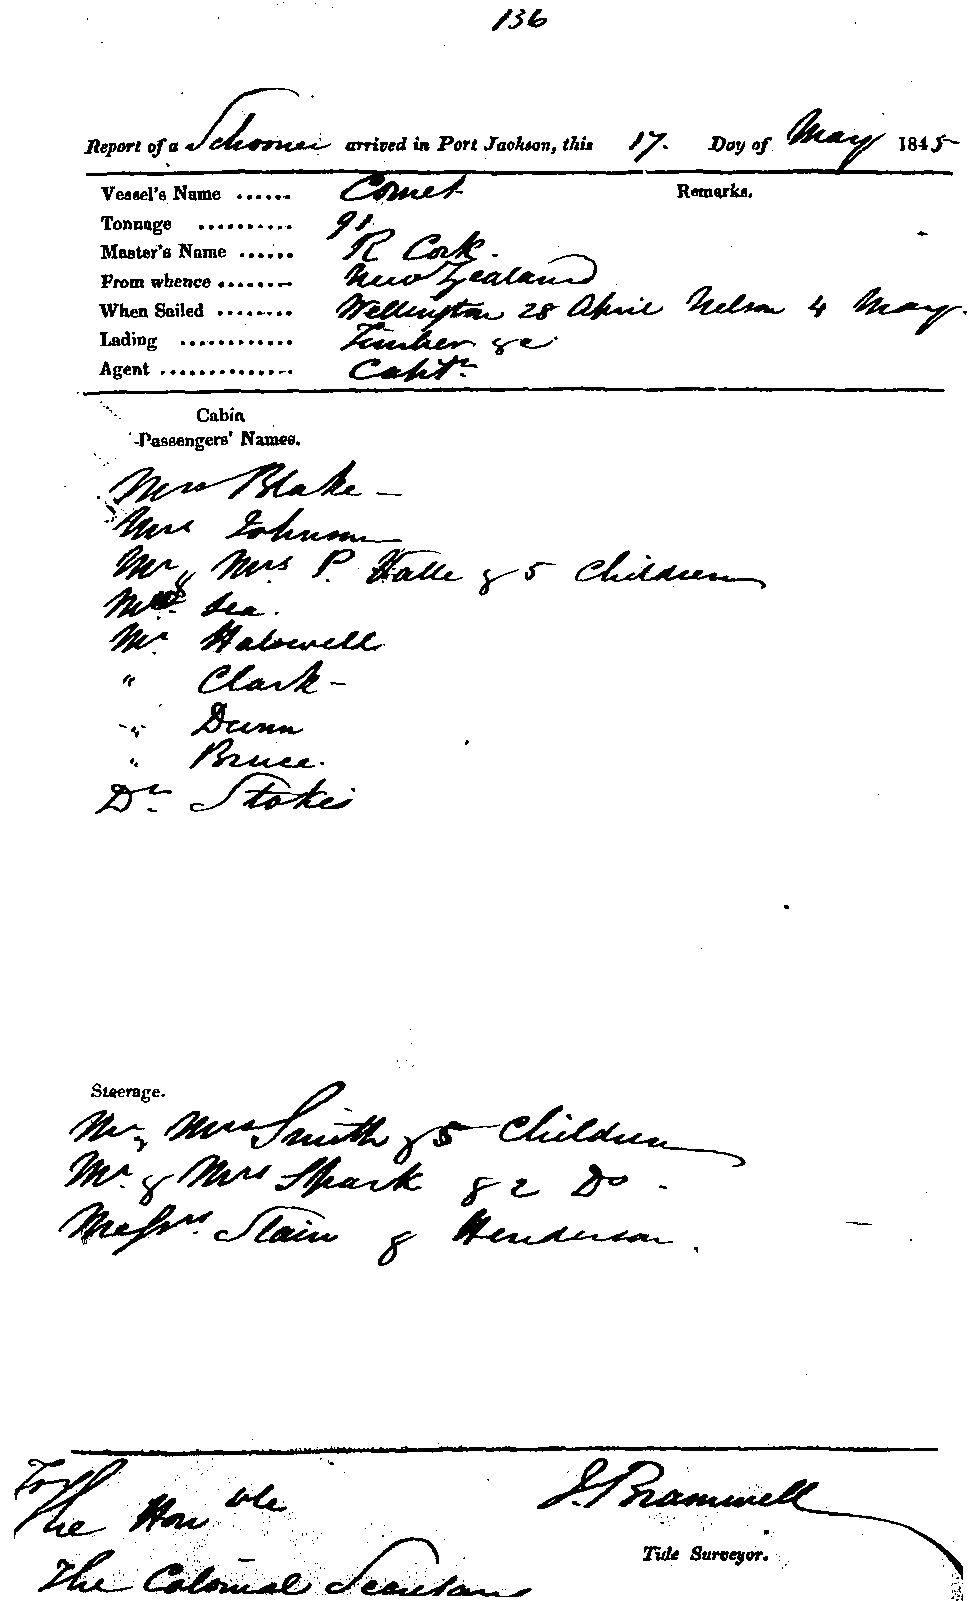 136
Report of a Schooner arrived in Port Jackson, this 17. Day of May 1845
Vessel's Name ...... Comet Remarks.
Tonnage .......... 91
Master's Name ...... R Cork.
From whence ........ New Zealand
When Sailed ........ Wellington 28 April Nelson 4 May.
Lading ............ Timber &c
Agent .............. Captn
Cabin
Passengers' Names.
Mrs Blake –
Mrs Johnson
Mr & Mrs P. Valle & 5 Children
Sea.
Mr Halswell
" Clark –
" Dunn
" Bruce.
Dr Stokes
Steerage.
Mr & Mrs Smith & 5 Children
Mr. & Mrs Spark & 2 Do.
Messrs. Stain & Henderson.
To
The Honble
The Colonial Secretary
J. Bramwell
Tide Surveyor.